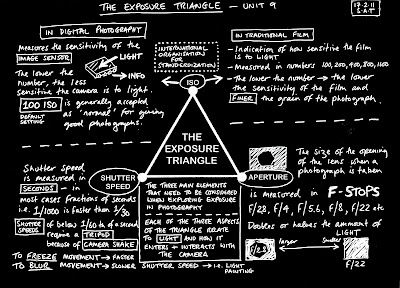 THE EXPOSURE TRIANGLE - UNIT 9
17.2.11
S.A.T
IN DIGITAL PHOTOGRAPHY
Measures the sensitivity of the
IMAGE SENSOR.
LIGHT
INFO
The lower the
number, the less
sensitive the camera is to light.
100 ISO is generally accepted
DEFAULT
SETTING
as 'normal' for gaining
good photographs.
INTERNATIONAL
ORGANISATION
FOR
STANDARDIZATION
ISO
IN TRADITIONAL FILM
- Indication of how sensitive the film
is to LIGHT
- Measured in numbers 100, 200, 400, 800, 1600
- The lower the number → the lower
the sensitivity of the film and
FINER the grain of the photograph.
THE
EXPOSURE
TRIANGLE
Shutter speed
is measured in
SECONDS - in
most cases fractions of seconds
i.e. 1/1000 is faster than 1/30
SHUTTER
SPEEDS
of below 1/60th of a second
require a TRIPOD
because of CAMERA SHAKE
TO FREEZE MOVEMENT → FASTER
TO BLUR MOVEMENT → SLOWER SHUTTER SPEED → i.e. LIGHT
PAINTING
SHUTTER
SPEED
THE THREE MAIN ELEMENTS
THAT NEED TO BE CONSIDERED
WHEN EXPLORING EXPOSURE
IN PHOTOGRAPHY
EACH OF THE THREE ASPECTS
OF THE TRIANGLE RELATE
TO LIGHT AND HOW IT
ENTERS + INTERACTS WITH
THE CAMERA
APERTURE
The size of the opening
of the lens when a
photograph is taken
is measured in F-STOPS
F/2.8, F/4, F/5.6, F/8, F/22 etc
Doubles or halves the amount of
LIGHT
F/2.8
larger
smaller
F/22